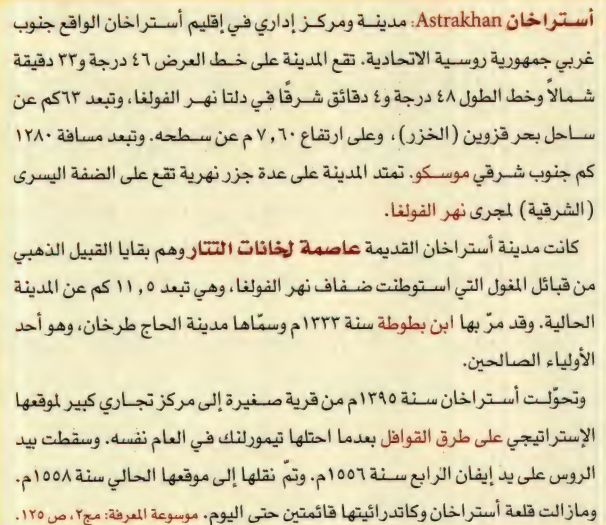 أستراخان Astrakhan: مدينة ومركز إداري في إقليم أستراخان الواقع جنوب
غربي جمهورية روسية الاتحادية. تقع المدينة على خط العرض ٤٦ درجة و٣٣ دقيقة
شمالاً وخط الطول ٤٨ درجة و٤ دقائق شرقًا في دلتا نهر الفولغا، وتبعد ٦٣كم عن
ساحل بحر قزوين (الخزر)، وعلى ارتفاع ٧,٦٠ م عن سطحه. وتبعد مسافة ١٢٨٠
كم جنوب شرقي موسكو. تمتد المدينة على عدة جزر نهرية تقع على الضفة اليسرى
(الشرقية) لمجرى نهر الفولغا.
كانت مدينة أستراخان القديمة عاصمة لخانات التتار وهم بقايا القبيل الذهبي
من قبائل المغول التي استوطنت ضفاف نهر الفولغا، وهي تبعد ١١,٥ كم عن المدينة
الحالية. وقد مرّ بها ابن بطوطة سنة ١٣٣٣م وسمّاها مدينة الحاج طرخان، وهو أحد
الأولياء الصالحين.
وتحوّلت أستراخان سنة ١٣٩٥م من قرية صغيرة إلى مركز تجاري كبير لموقعها
الإستراتيجي على طرق القوافل بعدما احتلها تيمورلنك في العام نفسه. وسقطت بيد
الروس على يد إيفان الرابع سنة ١٥٥٦م. وتمّ نقلها إلى موقعها الحالي سنة ١٥٥٨م.
ومازالت قلعة أستراخان وكاتدرائيتها قائمتين حتى اليوم. موسوعة المعرفة: مج٢، ص ١٢٥.